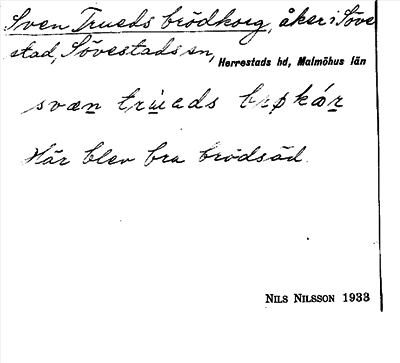 Sven Trueds brödkorg, åker i Söve
stad, Sövestads sn, Herrestads hd, Malmöhus län
svæn trùeds brøkǻr
Här blev bra brödsäd.
NILS NILSSON 1933